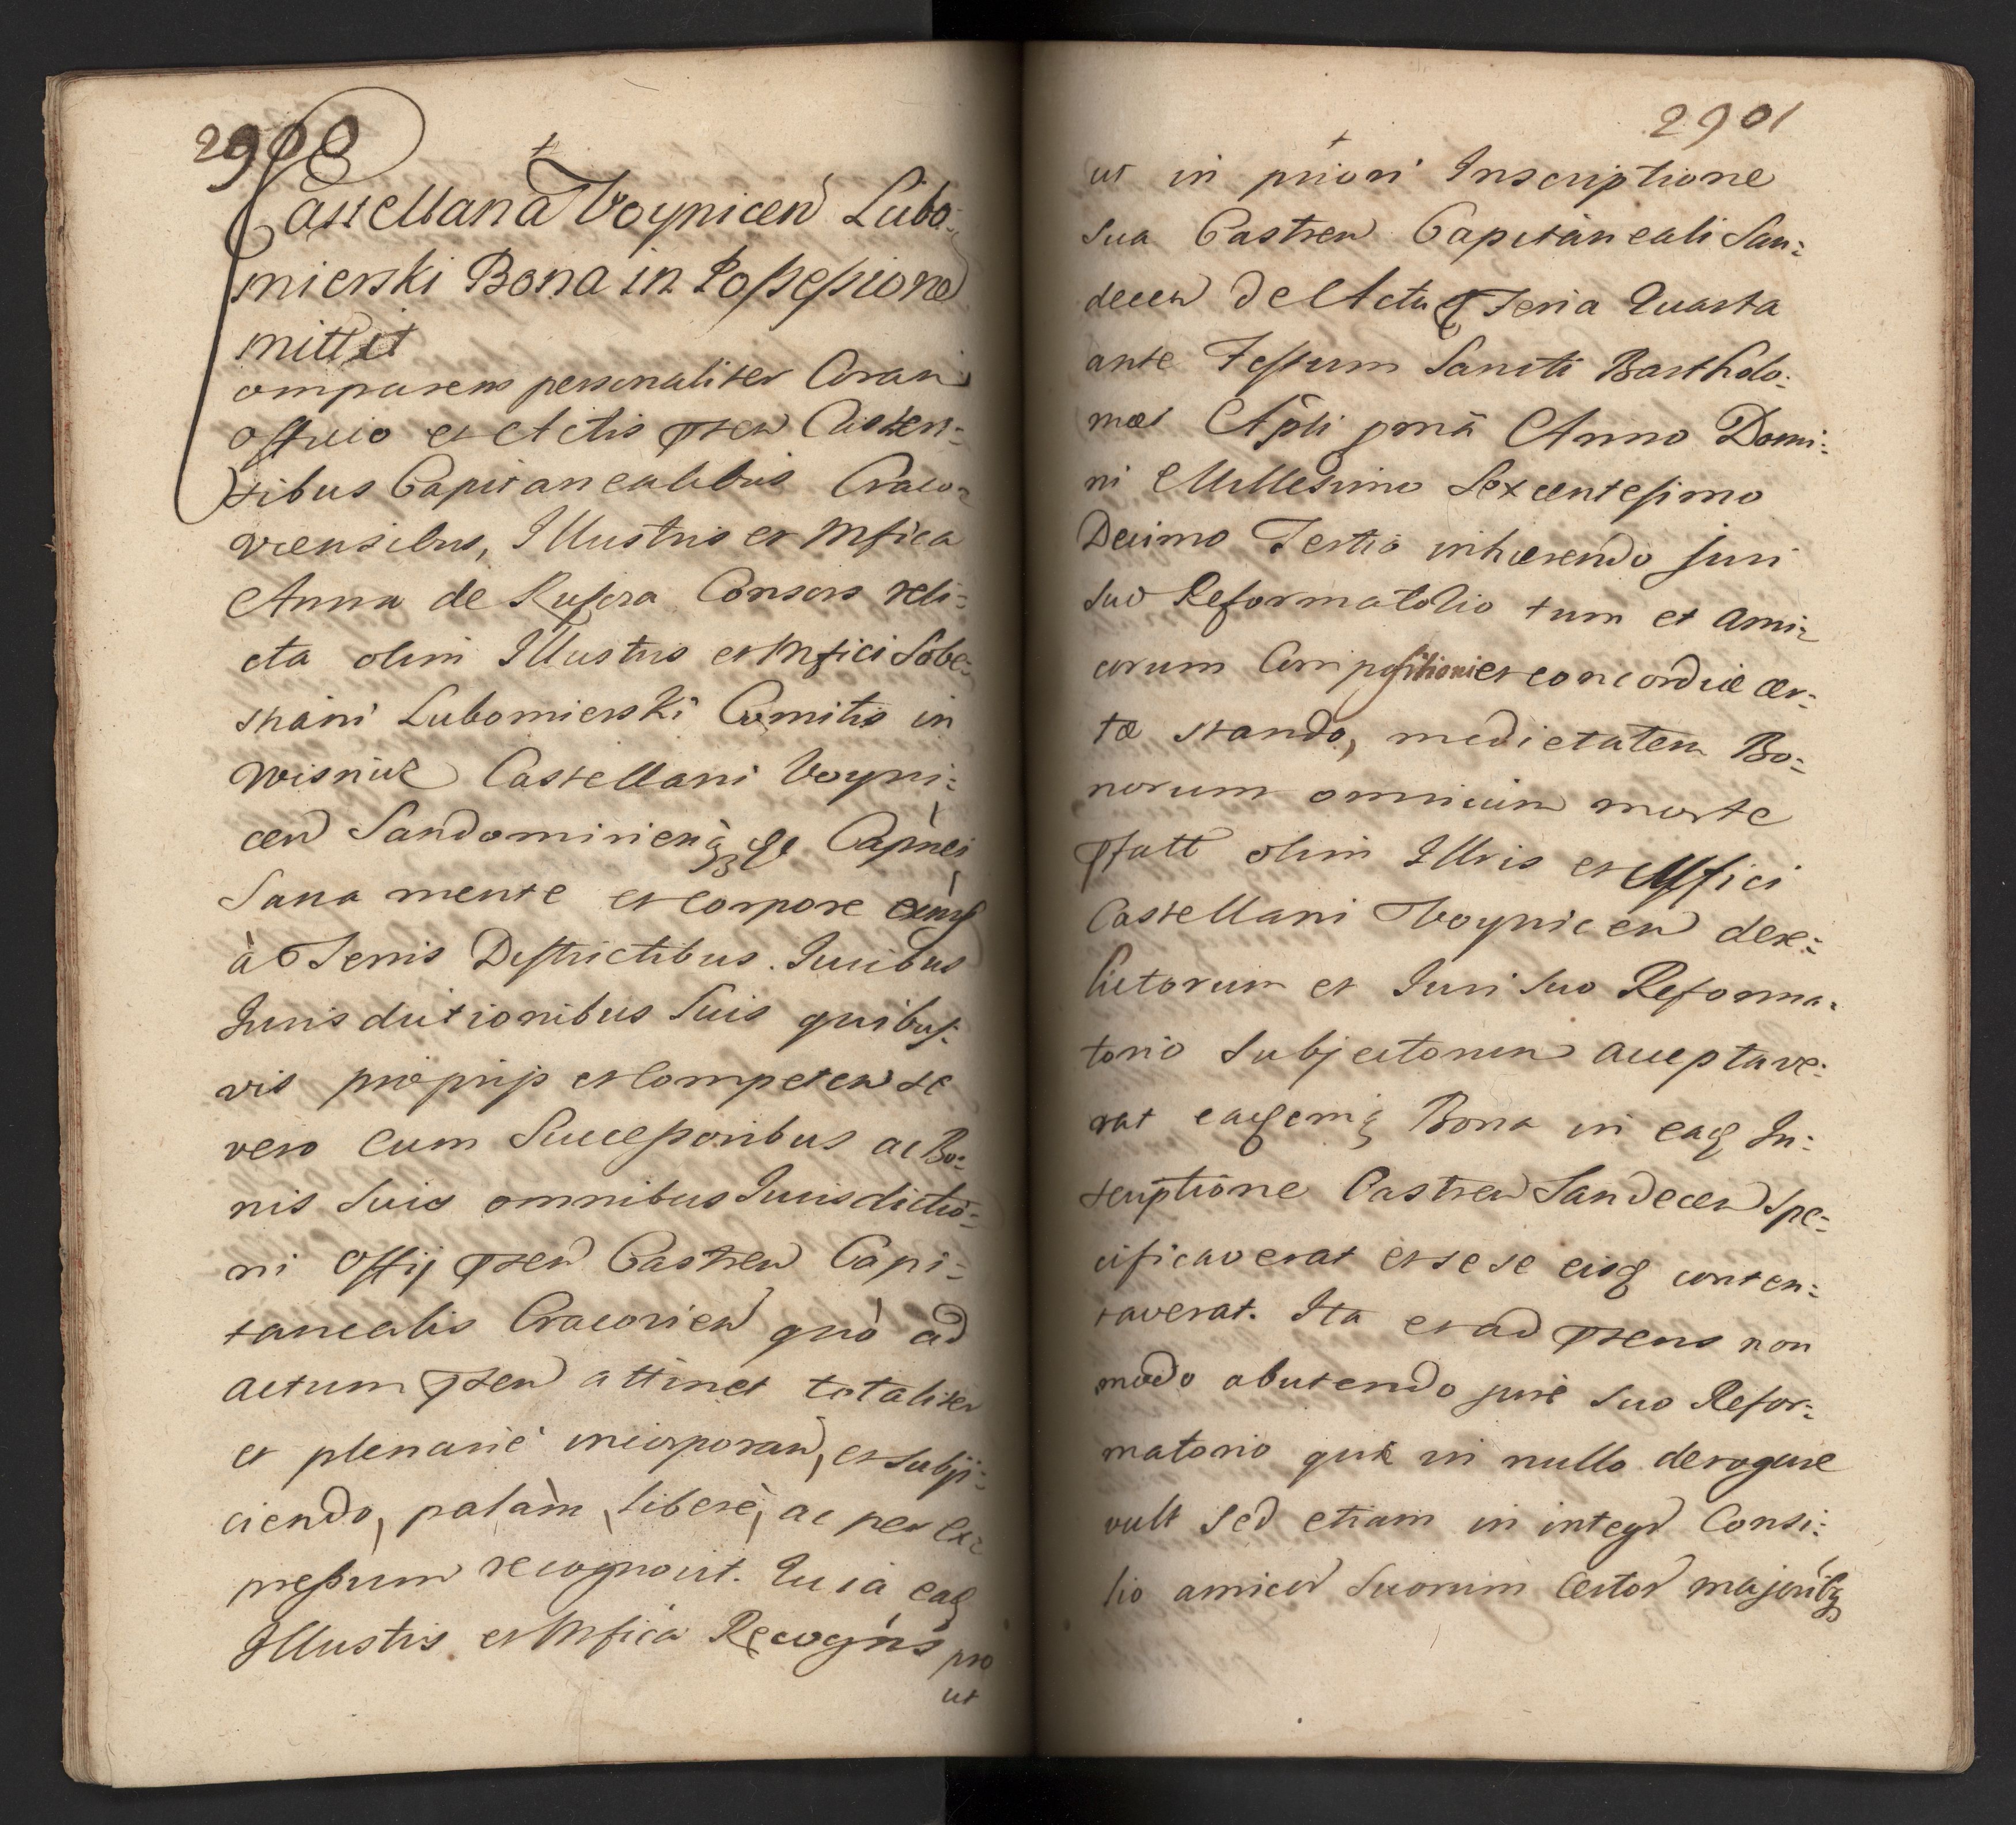 2900
Castellana Voynicen Lubo:
mierski Bona in Possessione
mittit
omparens personaliter Coram
officio et Actis pnten Castren:
sibus Capitanealibus Craco:
viensibus, Illustris et Mfica
Anna de Ruszcza Consors reli:
cta olim Illustris et Mfici Seba:
stiani Lubomierski Comitis in
Wisnicz Castellani Voyni:
cen Sandomirien Capnei
Sana mente et corpore existens
à Terris Districtibus. Iuribus
Jurisdictionibus Suis quibus:
vis proprijs et competen se
vero cum Successoribus ac Bo:
nis Suis omnibus Jurisdictio:
ni Offij pnten Castren Capi:
tanealis Cracovien quò ad
actum pnten attinet totaliter
et plenariè incorporan, et subji:
ciendo, palàm, liberè, ac per ex:
pressum recognovit. Quia eadq
Illustris et Mfica Recogns pro
ut
2901
ut in priori Inscriptione
Sua Castren Capitaneali San:
decen de Actu Feria Quarta
ante Festum Sancti Bartholo:
mæi Apli pma Anno Domi:
ni Millesimo Sexcentesimo
Decimo Tertio inhærendo juri
Suo Reformatorio tum et ami:
corum Compositioni et concordiæ cer:
tæ stando, medietatem Bo:
norum omnium morte
pfati olim Illris et Mfici
Castellani Woynicen dere:
lictorum et Juri Suo Reforma:
torio Subjectorum acceptave:
rat eademq Bona in eadq In:
scriptione Castren Sandecen Spe:
cificaverat et sese eisdq conten:
taverat. Ita et ad pntens non
modo abutendo jure Suo Refor:
matorio quit in nullo derogare
vult Sed etiam in integro Consi:
lio amicor Suorum Certor majoribq